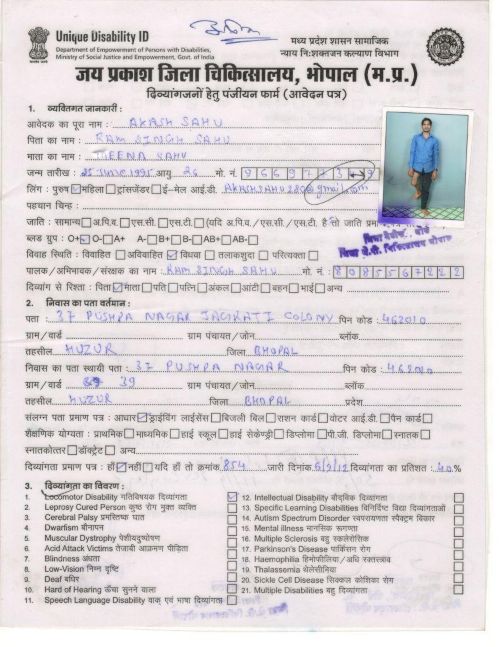 Unique Disability ID
Department of Empowerment of Persons with Disabilities,
Ministry of Social Justice and Empowerment, Govt. of India
मध्य प्रदेश शासन सामाजिक
न्याय निःशक्तजन कल्याण विभाग
जय प्रकाश जिला चिकित्सालय, भोपाल (म.प्र.)
दिव्यांगजनों हेतु पंजीयन फार्म (आवेदन पत्र)
1. व्यक्तिगत जानकारी :
आवेदक का पूरा नाम : AKASH SAHU
पिता का नाम : RAM SINGH SAHU
माता का नाम : MEENA SAHU
जन्म तारीख : 25 June 1995 आयु 26 मो. नं.
लिंग : पुरुष महिला ट्रांसजेंडर ई-मेल आई.डी.
पहचान चिन्ह :
जाति : सामान्य अ.पि.व. एस.सी. एस.टी. (यदि अ.पि.व./एस.सी./एस.टी. है तो जाति
ब्लड ग्रुप : O+ O- A+ A- B+ B- AB+ AB-
विवाह स्थिति : विवाहित अविवाहित विधवा तलाकशुदा परित्यक्ता
पालक/अभिभावक/संरक्षक का नाम : RAM SINGH SAHU मो. नं. : 8085567222
दिव्यांग से रिश्ता : पिता माता पति पत्नि अंकल आंटी बहन भाई अन्य
2. निवास का पता वर्तमान :
पता : 37 PUSHPA NAGAR JAGRATI COLONY पिन कोड : 462010
ग्राम/वार्ड ग्राम पंचायत/जोन ब्लॉक
तहसील HUZUR जिला BHOPAL
निवास का पता स्थायी पता : 37 PUSHPA NAGAR पिन कोड :
ग्राम/वार्ड 39 ग्राम पंचायत/जोन ब्लॉक
तहसील HUZUR जिला BHOPAL प्रदेश
संलग्न पता प्रमाण पत्र : आधार ड्राईविंग लाईसेंस बिजली बिल राशन कार्ड वोटर आई.डी. पैन कार्ड
शैक्षणिक योग्यता : प्राथमिक माध्यमिक हाई स्कूल हाई सेकेण्ड्री डिप्लोमा पी.जी. डिप्लोमा स्नातक
स्नातकोत्तर डॉक्ट्रेट अन्य
दिव्यांगता प्रमाण पत्र : हाँ नहीं यदि हाँ तो क्रमांक 854 जारी दिनांक 6/9/12 दिव्यांगता का प्रतिशत : 40 %
3. दिव्यांगता का विवरण :
1. Locomotor Disability गतिविषयक दिव्यांगता
2. Leprosy Cured Person कुष्ठ रोग मुक्त व्यक्ति
3. Cerebral Palsy प्रमस्तिष्क घात
4. Dwarfism बौनापन
5. Muscular Dystrophy पेशीयदुष्पोषण
6. Acid Attack Victims तेजाबी आक्रमण पीड़िता
7. Blindness अंधता
8. Low-Vision निम्न दृष्टि
9. Deaf बधिर
10. Hard of Hearing ऊँचा सुनने वाला
11. Speech Language Disability वाक् एवं भाषा दिव्यांगता
12. Intellectual Disability बौद्धिक दिव्यांगता
13. Specific Learning Disabilities विनिर्दिष्ट विद्या दिव्यांगताओं
14. Autism Spectrum Disorder स्वपरायणता स्पैक्ट्रम विकार
15. Mental Illness मानसिक रूग्णता
16. Multiple Sclerosis बहु स्कलेरोसिक
17. Parkinson's Disease पार्किसन रोग
18. Haemophilia हिमोफीलिया/अधि रक्तस्त्राव
19. Thalassemia थेलेसीनिया
20. Sickle Cell Disease सिक्कल कोशिका रोग
21. Multiple Disabilities बहु दिव्यांगता